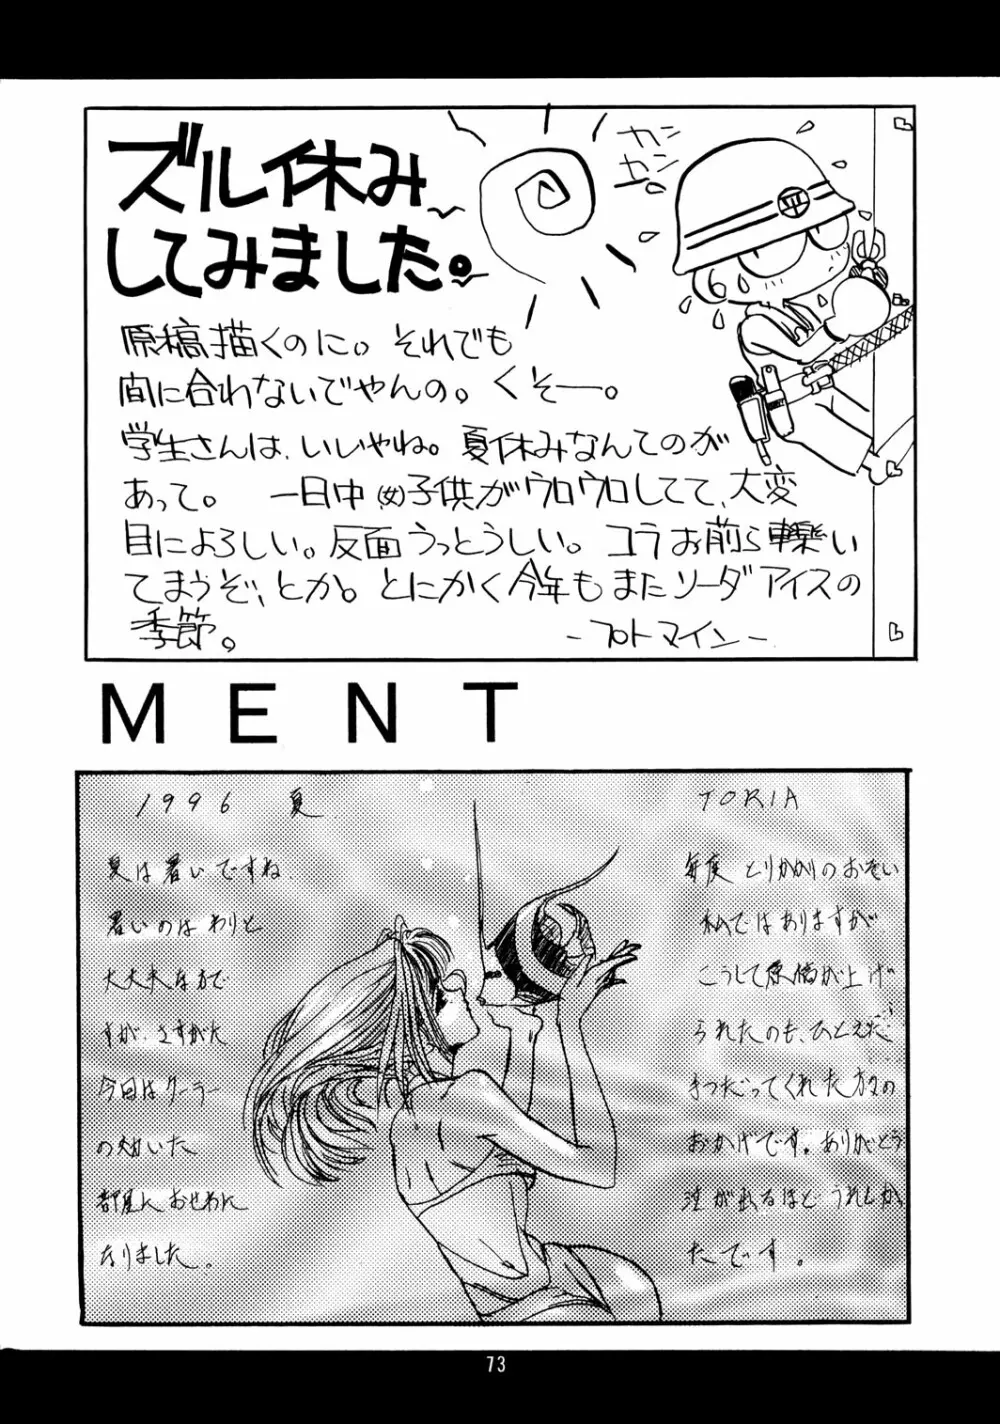 ズル休み
してみました。
カン
カン。
原稿描くのに。それでも
間に合わないでやんの。くそー。
学生さんは、いいやね。夏休みなんてのが
あって。一日中(女)子供がウロウロしてて、大変
目によろしい。反面うっとうしい。コラお前ら轢い
てまうぞ、とか。とにかく今年もまたソーダアイスの
季節。 -プロトマイン-
MENT
1996 夏
夏は暑いですね.
暑いのはわりと
大丈夫なので
すが、さすがに
今回はクーラー
の効いた
部屋におせわに
なりました。
TORIA
毎度とりかかりのおそい
私ではありますが
こうして原稿が上げ
られたのも、ひとえに
手つだってくれた方々の
おかげです。ありがとう
涙が出るほどうれしかっ
たです。
73